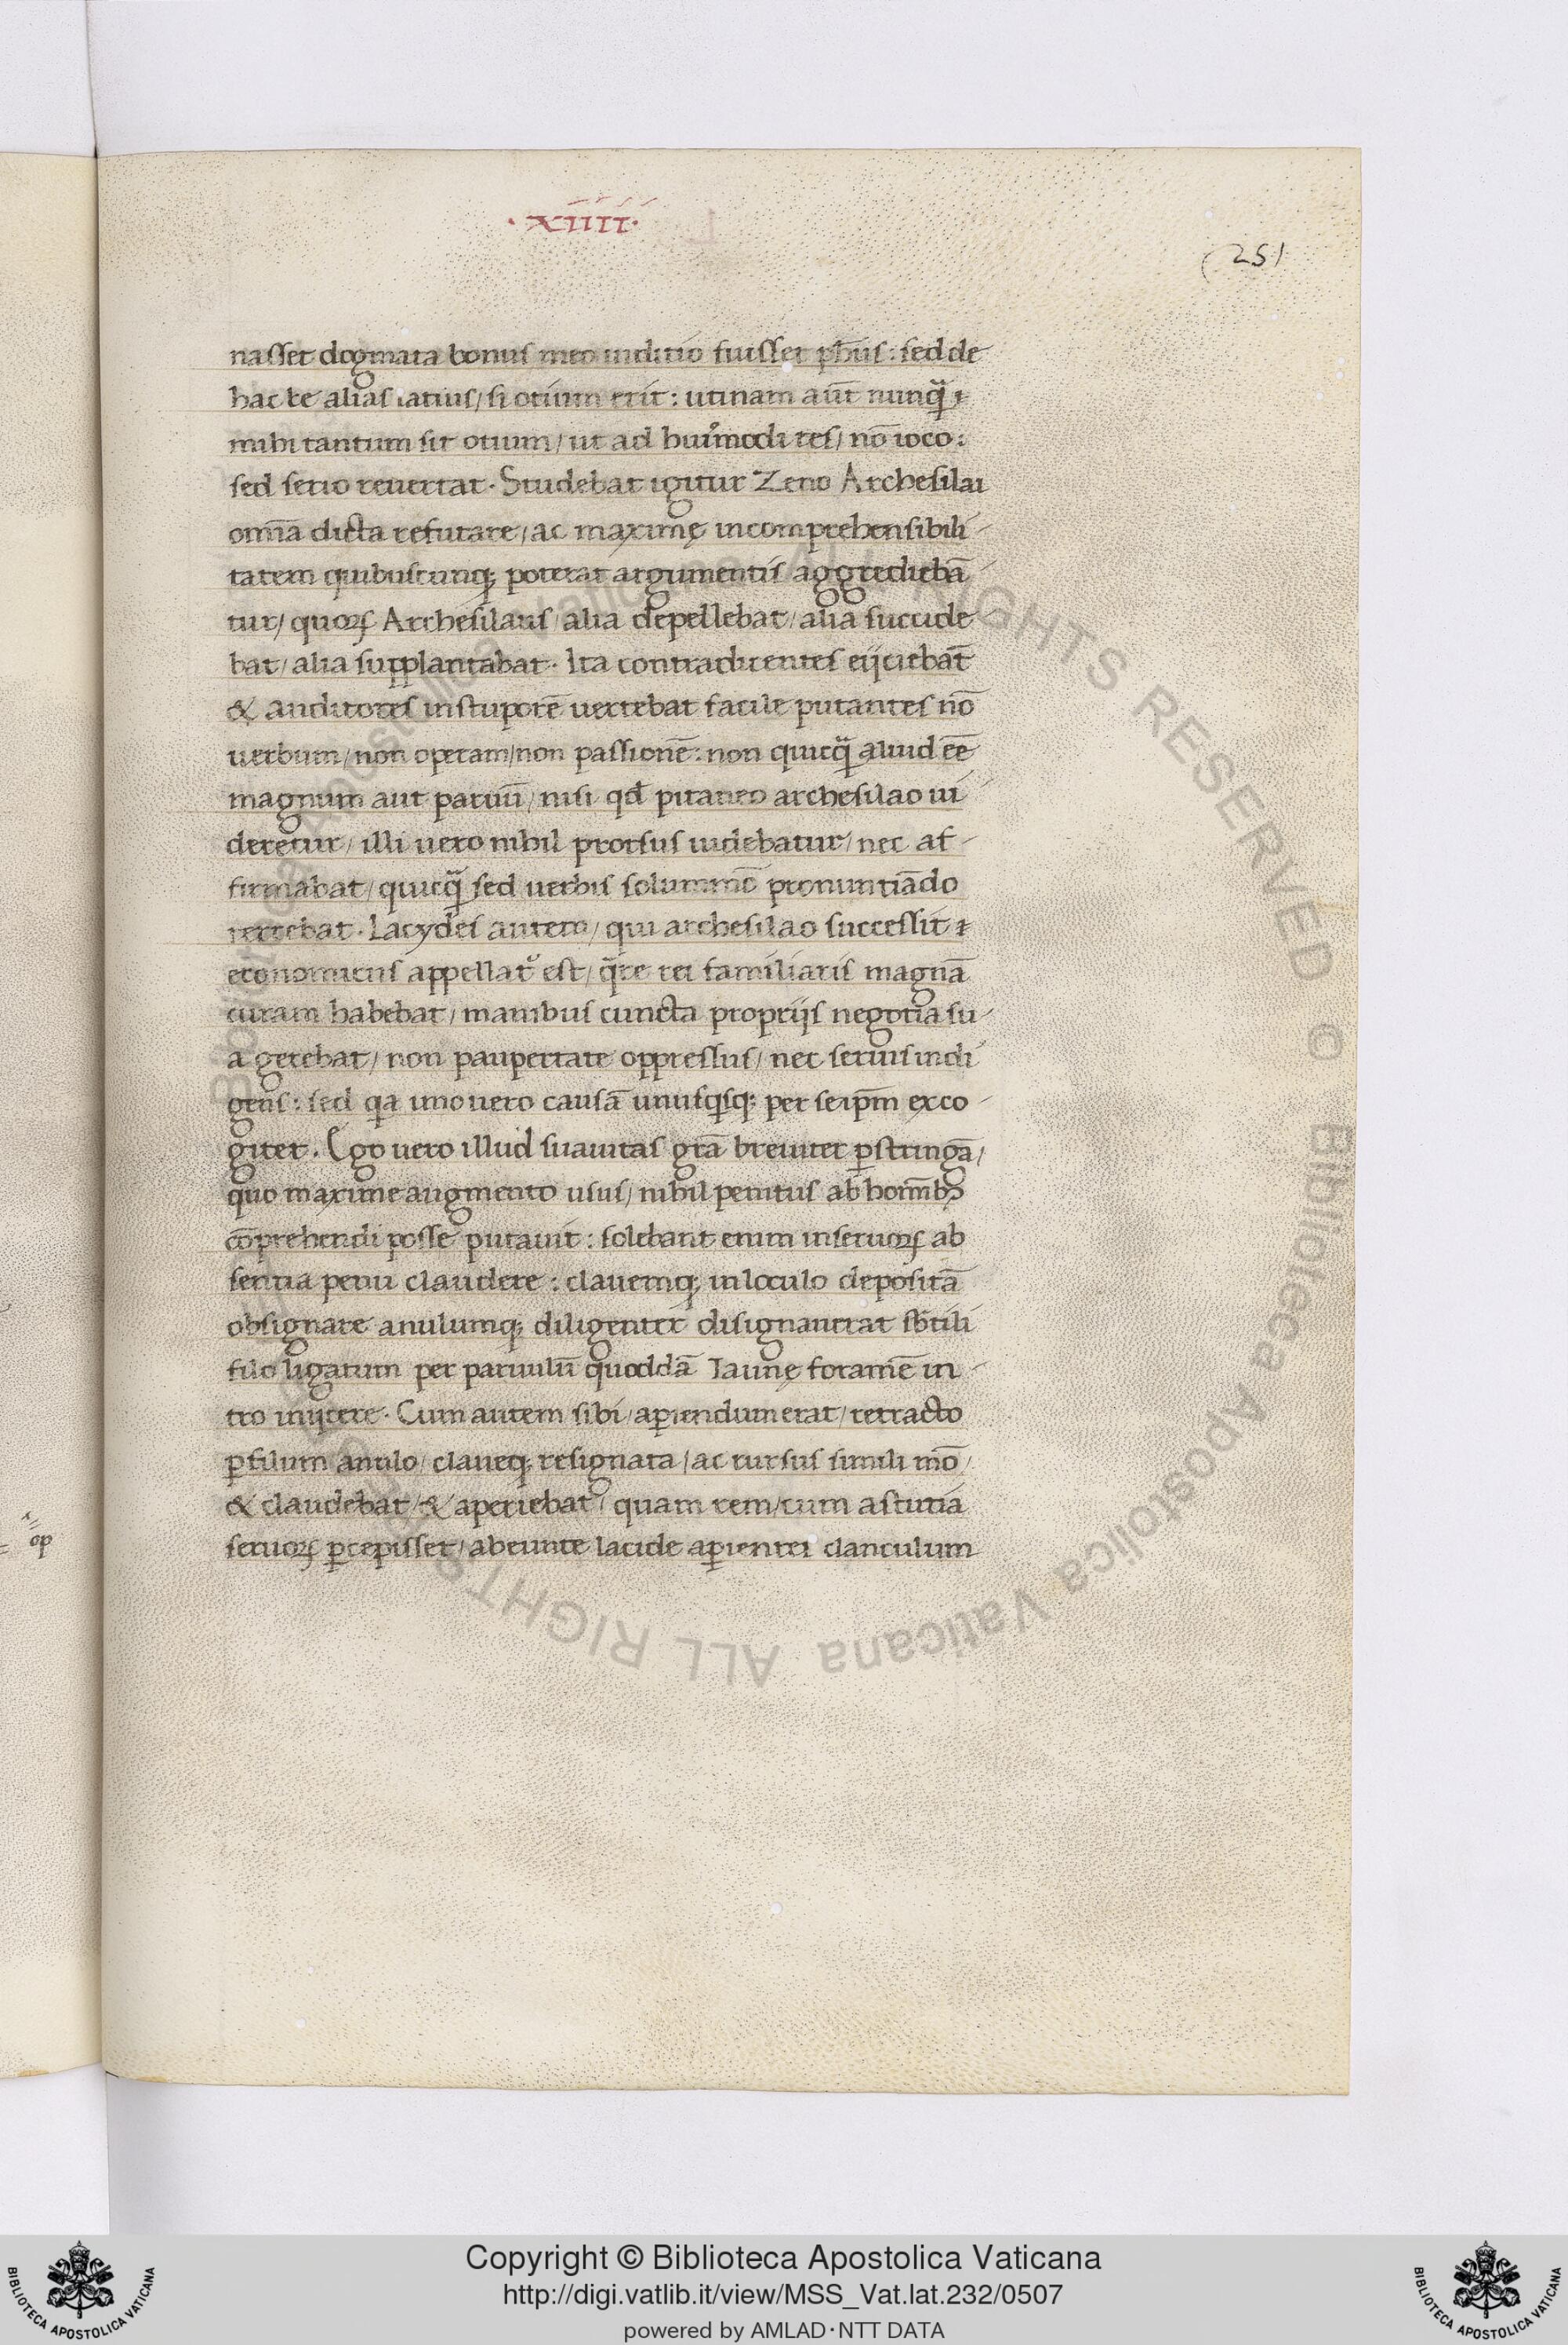 · xiiii ·
251
nasset dogmata bonus meo iuditio fuisset ph̄us: sed de
hac re alias latius/ si otium erit: utinam aūt nunq̄
mihi tantum sit otium/ ut ad huiꝰmodi res/ nō ioco:
sed serio reuertat. Studebat igitur Zeno Archesilai
om̄a dicta refutare/ ac maximę incomprehensibili
tatem quibuscunq; poterat argumentis aggrediebā
tur/ quoꝝ Archesilaus/ alia depellebat/ alia succide
bat/ alia supplantabat. Ita contradicentes eijciebat̄
& auditores instuporē uertebat facile putantes nō
uerbum/ non operam/ non passionē: non quicq̄ aliud eē
magnum aut paruū/ nisi qd̄ pitaneo archesilao ui
deretur/ illi uero nihil prorsus uidebatur/ nec af
firmabat/ quicq̄ sed uerbis solummō pronuntiādo
Lacydes autem/ qui archesilao successit
economicus appellatꝰ est/ q̄re rei familiaris magnā
curam habebat/ manibus cuncta proprijs negotia su
a gerebat/ non paupertate oppressus/ nec seruis indi
gens: sed qa uno uero causā unusqsq; per seip̄m exco
gitet. Ego uero illud suauitas grā breuiter ꝑstringā/
quo maxime augmento usus/ nihil penitus ab homīb;
cōprehendi posse putauit: solebant enim inseruoꝝ ab
sentia penu claudere: clauemq; inloculo depositā
obsignare anulumq; diligenter disignauerat sb̄tili
filo ligatum per paruulū quoddā Iaunę foramē in
tro inijcere. Cum autem sibi/ aꝑiendum erat/ retracto
ꝑ filum anulo/ claueq; resignata/ ac rursus simili mō/
& claudebat/ & aperiebat/ quam rem/ cum astutia
seruoꝝ ꝑcepisset/ abeunte lacide aꝑientei clanculum
op
Copyright © Biblioteca Apostolica Vaticana
http://digi.vatlib.it/view/MSS_Vat.lat.232/0507
powered by AMLAD·NTT DATA
BIBLIOTECA APOSTOLICA VATICANA
BIBLIOTECA APOSTOLICA VATICANA
Biblioteca Apostolica Vaticana ALL RIGHTS RESERVED © Biblioteca Apostolica Vaticana ALL RIGHTS